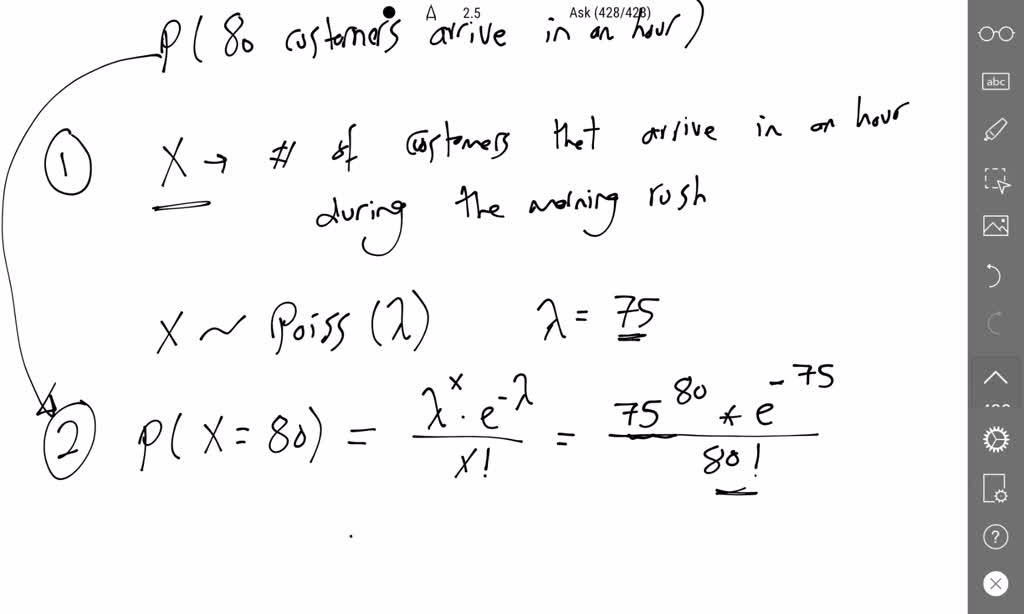 2.5 Ask (428/428)
P(80 customers arrive in an hour)
① X → # of customers that arrive in an hour
during the morning rush
X ~ Poiss(λ) λ = 75
② P(X = 80) = λ^x · e^-λ / x! = 75^80 * e^-75 / 80!
abc
?